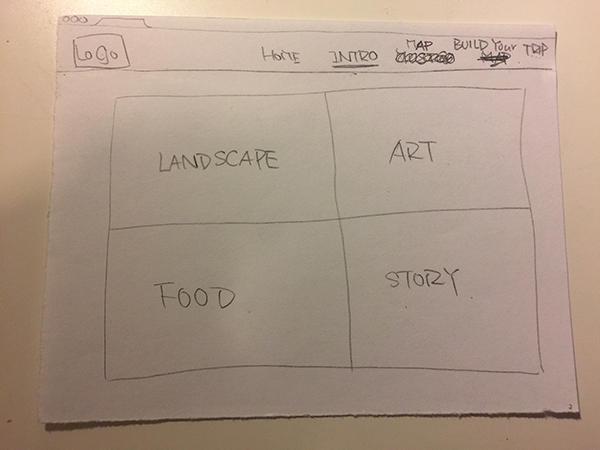 LOGO HOME INTRO MAP BUILD Your TRIP
LANDSCAPE ART
FOOD STORY
2